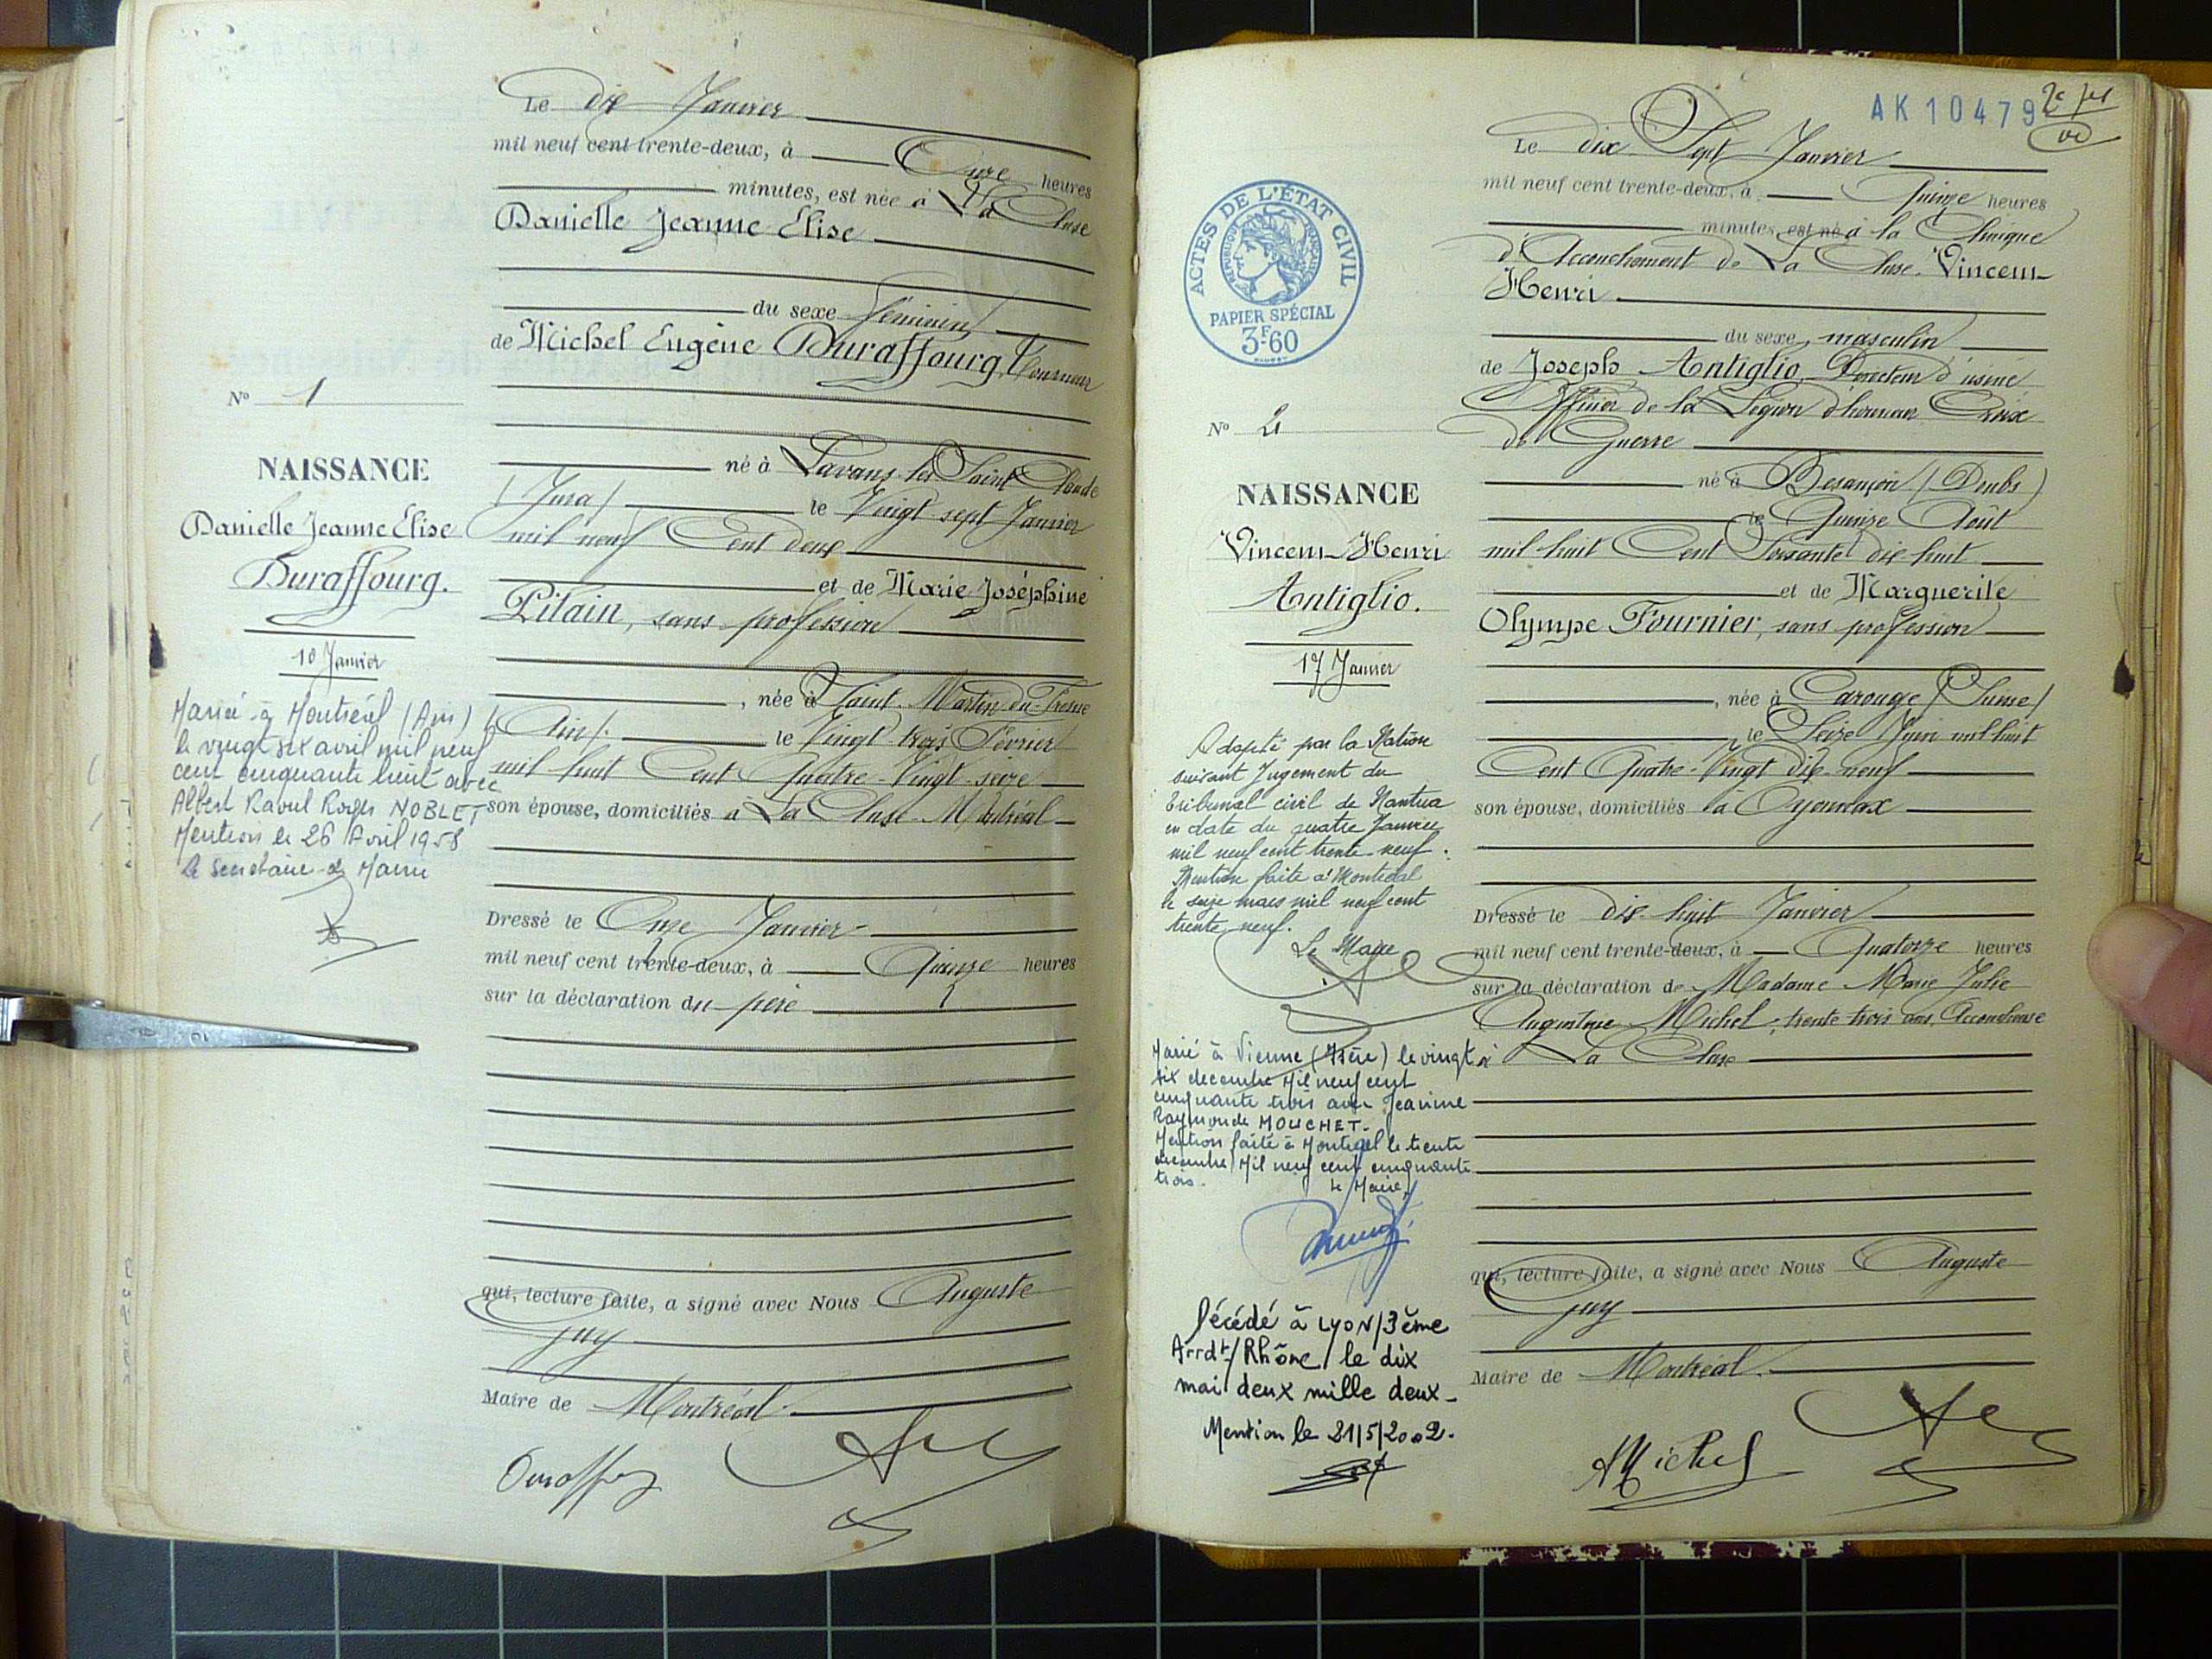 Le dix Janvier
mil neuf cent trente-deux, à Onze heures
minutes, est née à La Cluse
Danielle Jeanne Elise
du sexe féminin
de Michel Eugène Duraffourg, Tourneur
né à Lavans-les-Saint Claude
(Jura) le Vingt sept Janvier
mil neuf Cent deux
et de Marie Joséphine
Pilain, sans profession
, née à Saint-Martin-du-Fresne
(Ain). le Vingt-trois Février
mil huit Cent Quatre-Vingt-seize
son épouse, domiciliés à La Cluse-Montréal
Dressé le Onze Janvier
mil neuf cent trente-deux, à Quinze heures
sur la déclaration du père
qui, lecture faite, a signé avec Nous Auguste
Guy
Maire de Montréal.
No 1
NAISSANCE
Danielle Jeanne Elise
Duraffourg.
10 Janvier
Mariée à Montréal (Ain)
le vingt six avril mil neuf
cent cinquante huit avec
Albert Raoul Roger NOBLET
Mention le 26 Avril 1958
Le Secrétaire de Mairie
AK 10479
ACTES DE L'ÉTAT CIVIL
RÉPUBLIQUE FRANÇAISE
PAPIER SPÉCIAL
3F60
Le dix Sept Janvier
mil neuf cent trente-deux, à Quinze heures
minutes, est né à la Clinique
d'Accouchement de La Cluse. Vincent
Henri
du sexe masculin
de Joseph Antiglio Directeur d'usine
Officier de la Légion d'honneur Croix
de Guerre
né à Besançon (Doubs)
le Quinze Août
mil huit Cent Soixante dix huit
et de Marguerite
Olympe Fournier, sans profession
, née à Carouge (Suisse)
le Seize Juin mil huit
Cent Quatre-Vingt dix-neuf
son épouse, domiciliés à Oyonnax
Dressé le dix-huit Janvier
mil neuf cent trente-deux, à Quatorze heures
sur la déclaration de Madame Marie Julie
Augustine Michel, trente trois ans, Accoucheuse
à La Cluse
qui, lecture faite, a signé avec Nous Auguste
Guy
Maire de Montréal.
AMichel
No 2
NAISSANCE
Vincent Henri
Antiglio.
17 Janvier
Adopté par la Nation
suivant Jugement du
tribunal civil de Nantua
en date du quatre Janvier
mil neuf cent trente-neuf.
Mention faite à Montréal
le seize mars mil neuf cent
trente neuf.
Le Maire
Marié à Vienne (Isère) le vingt
six décembre Mil neuf cent
cinquante trois avec Jeanine
Raymonde MOUCHET.
Mention faite à Montréal le trente
décembre Mil neuf cent cinquante
trois.
Le Maire,
Décédé à LYON/3ème
Arrdt/Rhône/ le dix
mai deux mille deux_
Mention le 21/5/2002.